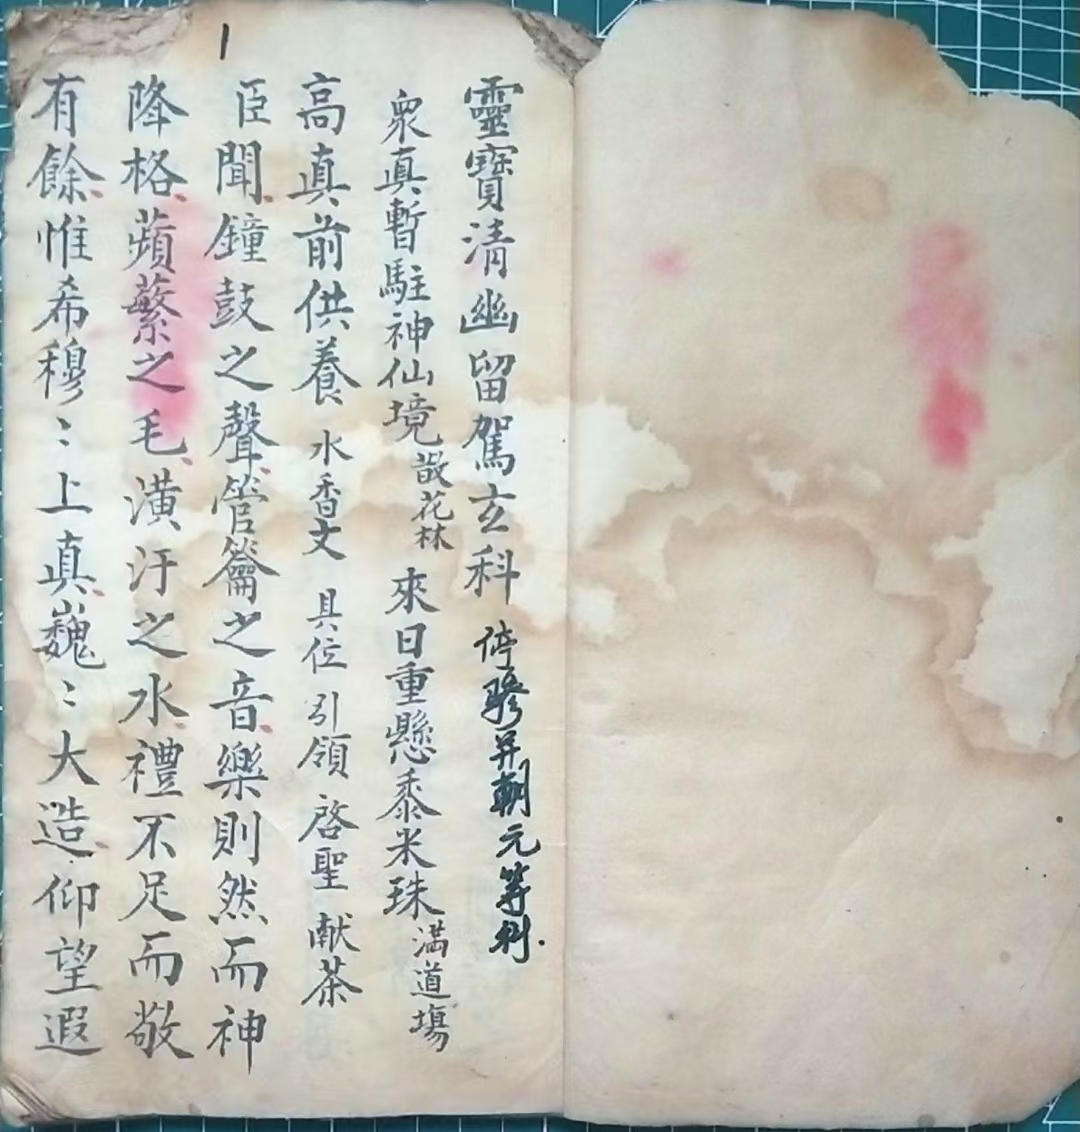 靈寶清幽留駕玄科 停驂并朝元等科.
衆真暫駐神仙境 散花林 來日重懸黍米珠 満道塲
高真前供養 水香文 具位 引領 啓聖 献茶
臣聞鐘鼓之聲管籥之音樂則然而神
降格蘋蘩之毛潢汙之水禮不足而敬
有餘惟希穆〻上真巍〻大造仰望遐